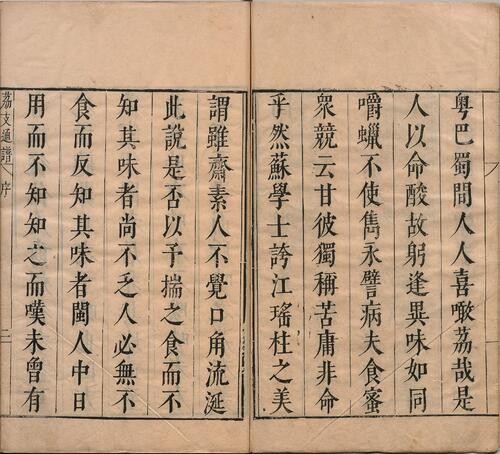 粤巴蜀間人人喜噉荔哉是
人以命酸故躬逢異味如同
嚼蠟不使雋永譬病夫食蜜
衆競云甘彼獨稱苦庸非命
乎然蘇學士誇江瑤柱之美
謂雖齋素人不覺口角流涎
此說是否以予揣之食而不
知其味者尚不乏人必無不
食而反知其味者閩人中日
用而不知知之而嘆未曾有
荔支通譜 序 二